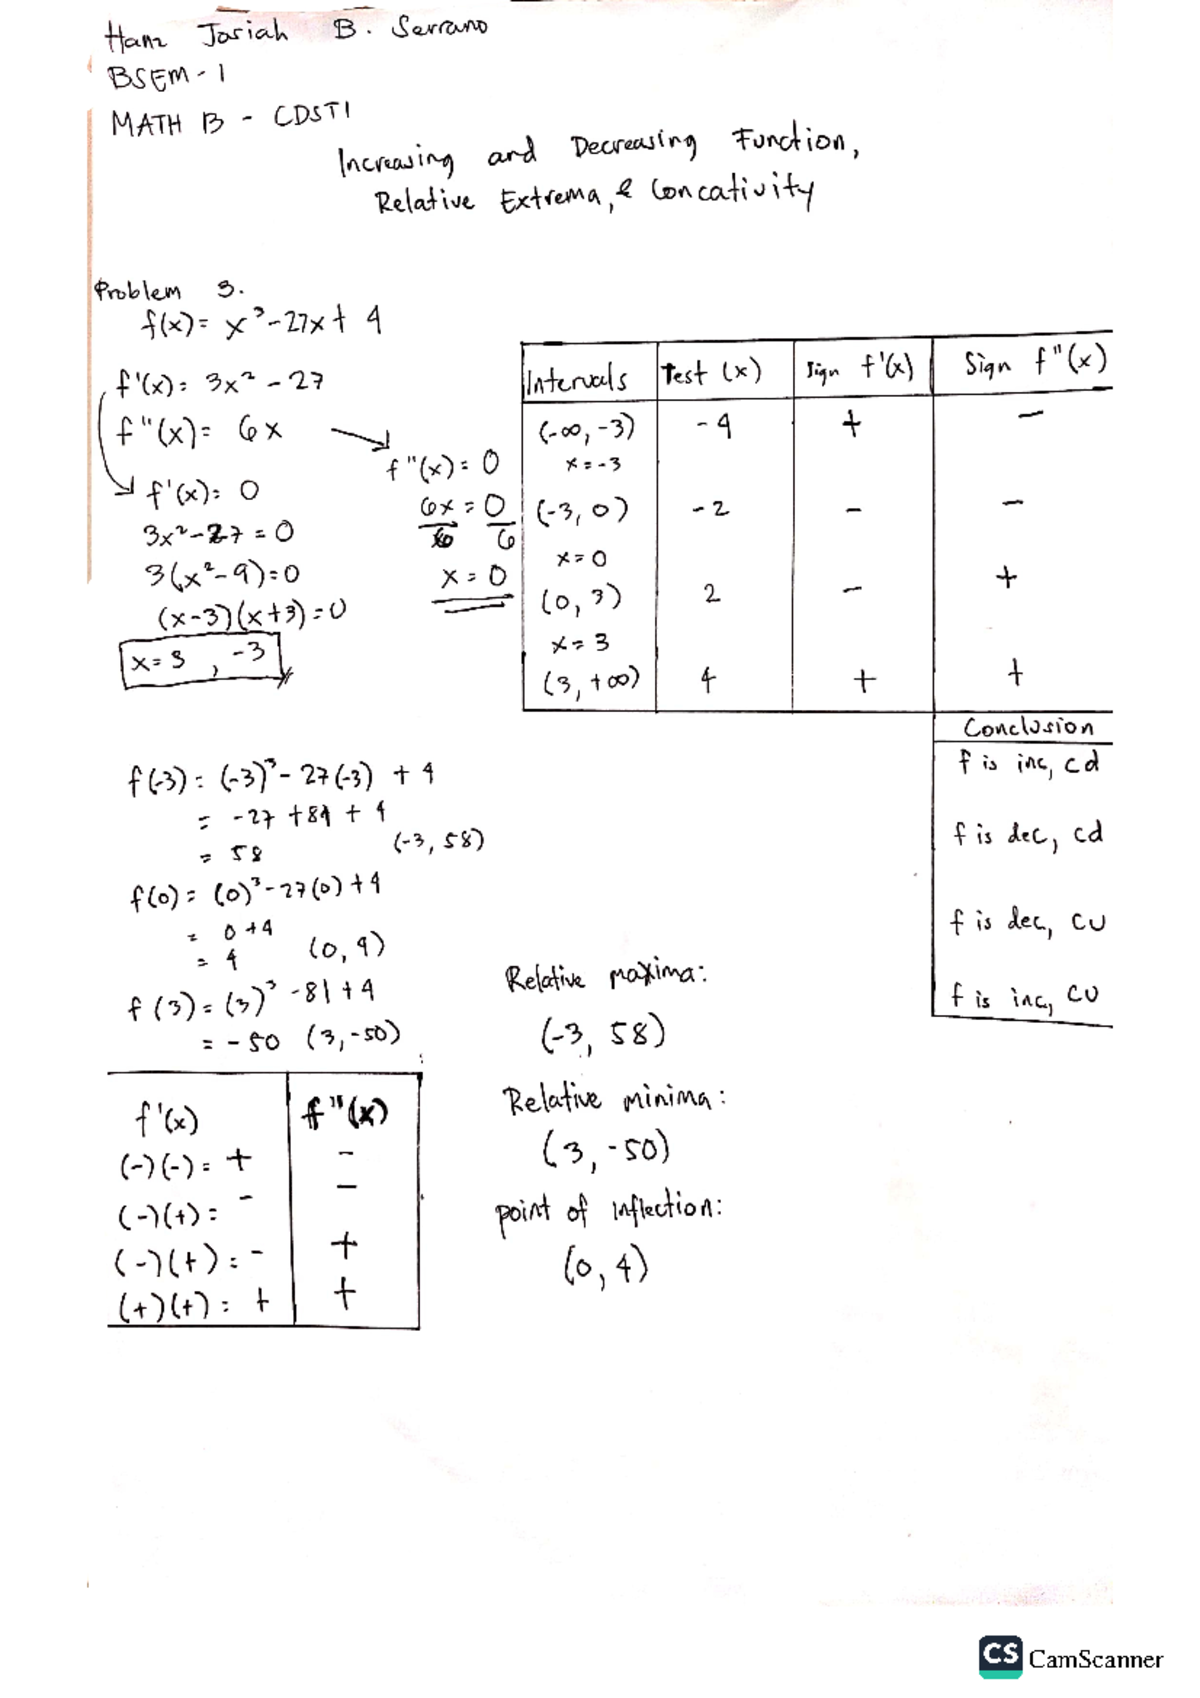 Hanz Josiah B. Serrano
BSEM - 1
MATH B - CDST1
Increasing and Decreasing Function,
Relative Extrema, & Concativity
Problem 3.
f(x) = x³ - 27x + 4
f'(x) = 3x² - 27
f"(x) = 6x
f'(x) = 0
3x² - 27 = 0
3(x² - 9) = 0
(x-3)(x+3) = 0
x = 3 , -3
f"(x) = 0
6x = 0
6 6
x = 0
Intervals Test (x) Sign f'(x) Sign f"(x)
(-∞, -3) -4 + -
x = -3
(-3, 0) -2 - -
x = 0
(0, 3) 2 - +
x = 3
(3, +∞) 4 + +
Conclusion
f is inc, cd
f is dec, cd
f is dec, cu
f is inc, cu
f(-3) = (-3)³ - 27(-3) + 4
= -27 + 81 + 4
= 58 (-3, 58)
f(0) = (0)³ - 27(0) + 4
= 0 + 4
= 4 (0, 4)
f(3) = (3)³ - 81 + 4
= -50 (3, -50)
f'(x) f"(x)
(-)(-) = + -
(-)(+) = - -
(-)(+) = - +
(+)(+) = + +
Relative maxima:
(-3, 58)
Relative minima:
(3, -50)
point of inflection:
(0, 4)
CS CamScanner